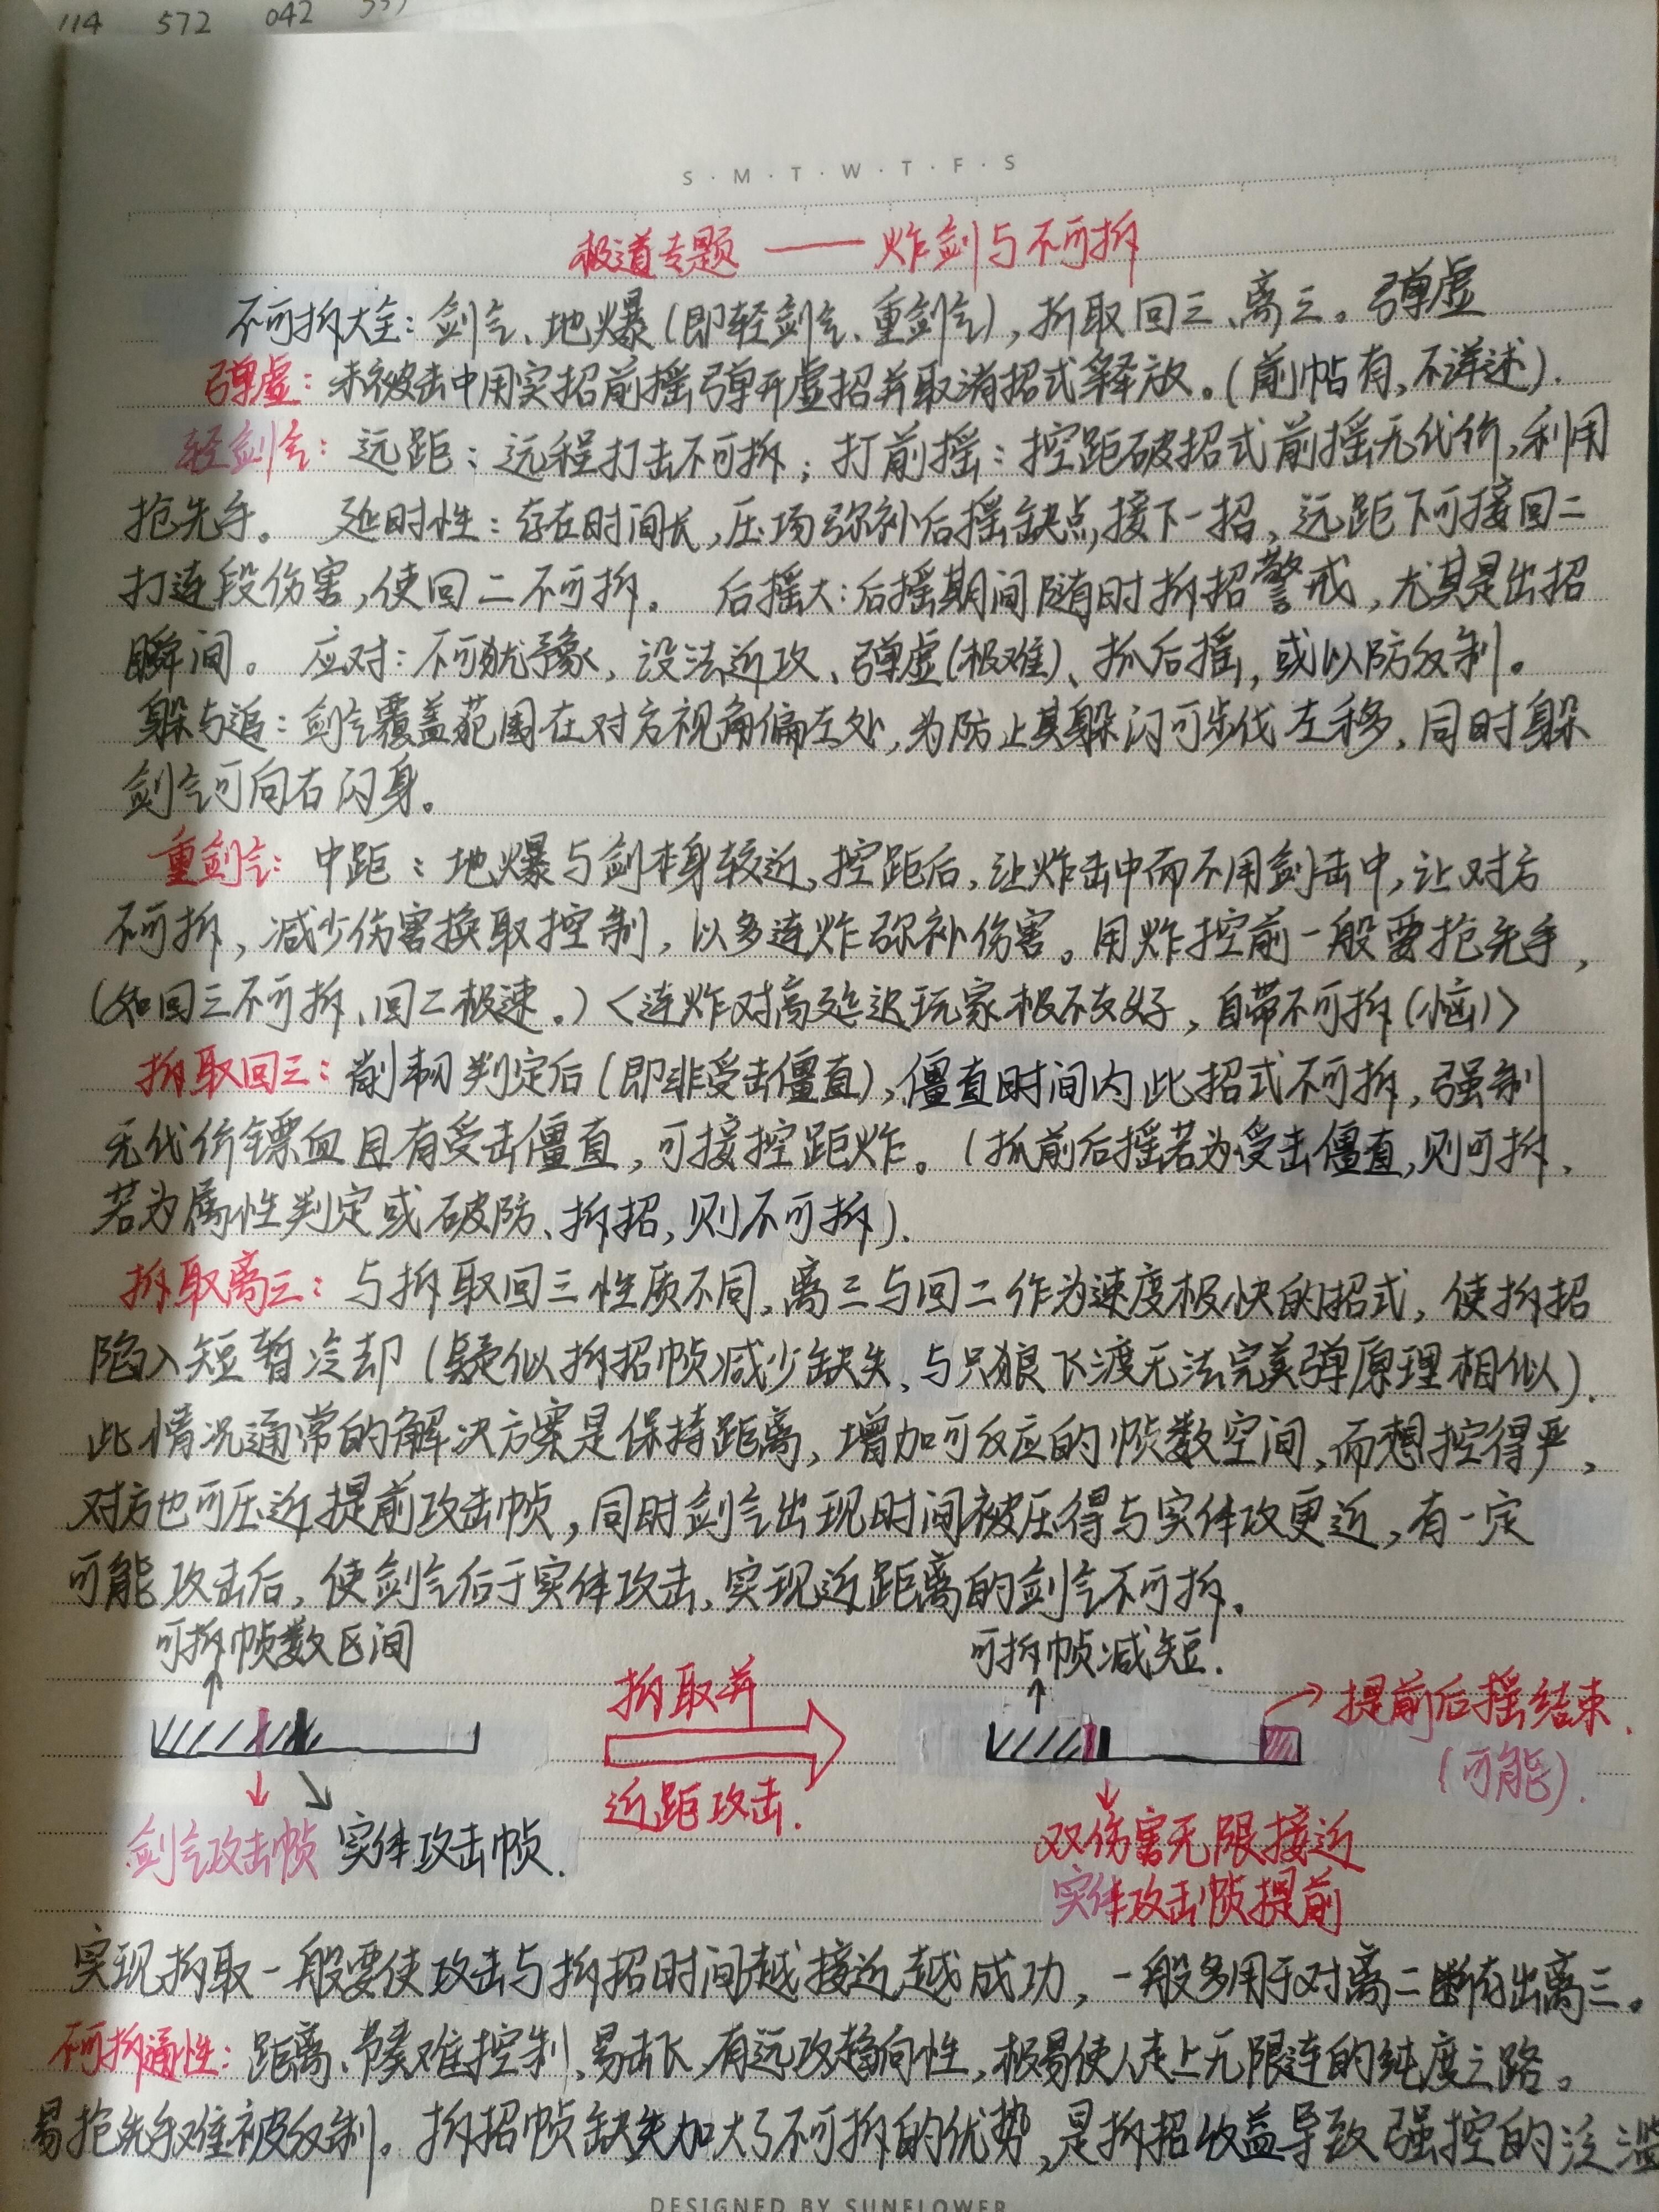 114 572 042
S·M·T·W·T·F·S
极道专题——炸剑与不可拆
不可拆大全:剑气、地爆(即轻剑气、重剑气),拆取回三、离三。弹虚
弹虚:未被击中用实招前摇弹开虚招并取消招式释放。(前帖有,不详述).
轻剑气:远距:远程打击不可拆;打前摇:控距破招式前摇无代价,利用
抢先手。 延时性:存在时间长,压场弥补后摇缺点,接下一招,远距下可接回二
打连段伤害,使回二不可拆。 后摇大:后摇期间随时拆招警戒,尤其是出招
瞬间。 应对:不可犹豫,设法近攻、弹虚(极难)、抓后摇,或以防反制。
躲与追:剑气覆盖范围在对方视角偏左处,为防止其躲闪可步伐左移,同时躲
剑气可向右闪身。
重剑气:中距:地爆与剑本身较近,控距后,让炸击中而不用剑击中,让对方
不可拆,减少伤害换取控制,以多连炸弥补伤害。用炸控前一般要抢先手,
(如回三不可拆、回二极速。)<连炸对高延迟玩家极不友好,自带不可拆(恼)>
拆取回三:削韧判定后(即非受击僵直),僵直时间内此招式不可拆,强制
无代价镖血且有受击僵直,可接控距炸。(抓前后摇若为受击僵直,则可拆,
若为属性判定或破防、拆招,则不可拆).
拆取离三:与拆取回三性质不同,离三与回二作为速度极快的招式,使拆招
陷入短暂冷却(疑似拆招帧减少缺失,与只狼飞渡无法完美弹原理相似).
此情况通常的解决方案是保持距离,增加可反应的帧数空间,而想控得严,
对方也可压近提前攻击帧,同时剑气出现时间被压得与实体攻更近,有一定
可能攻击后,使剑气后于实体攻击,实现近距离的剑气不可拆。
可拆帧数区间 可拆帧减短.
拆取并 提前后摇结束.
(可能).
近距攻击.
剑气攻击帧 实体攻击帧. 双伤害无限接近
实体攻击帧提前
实现拆取一般要使攻击与拆招时间越接近越成功,一般多用于对离二出离三。
不可拆通性:距离、节奏难控制,易击飞,有远攻趋向性,极易使人走上无限连的纯度之路。
易抢先手难被反制。拆招帧缺失加大了不可拆的优势,是拆招收益导致强控的泛滥
DESIGNED BY SUNFLOWER